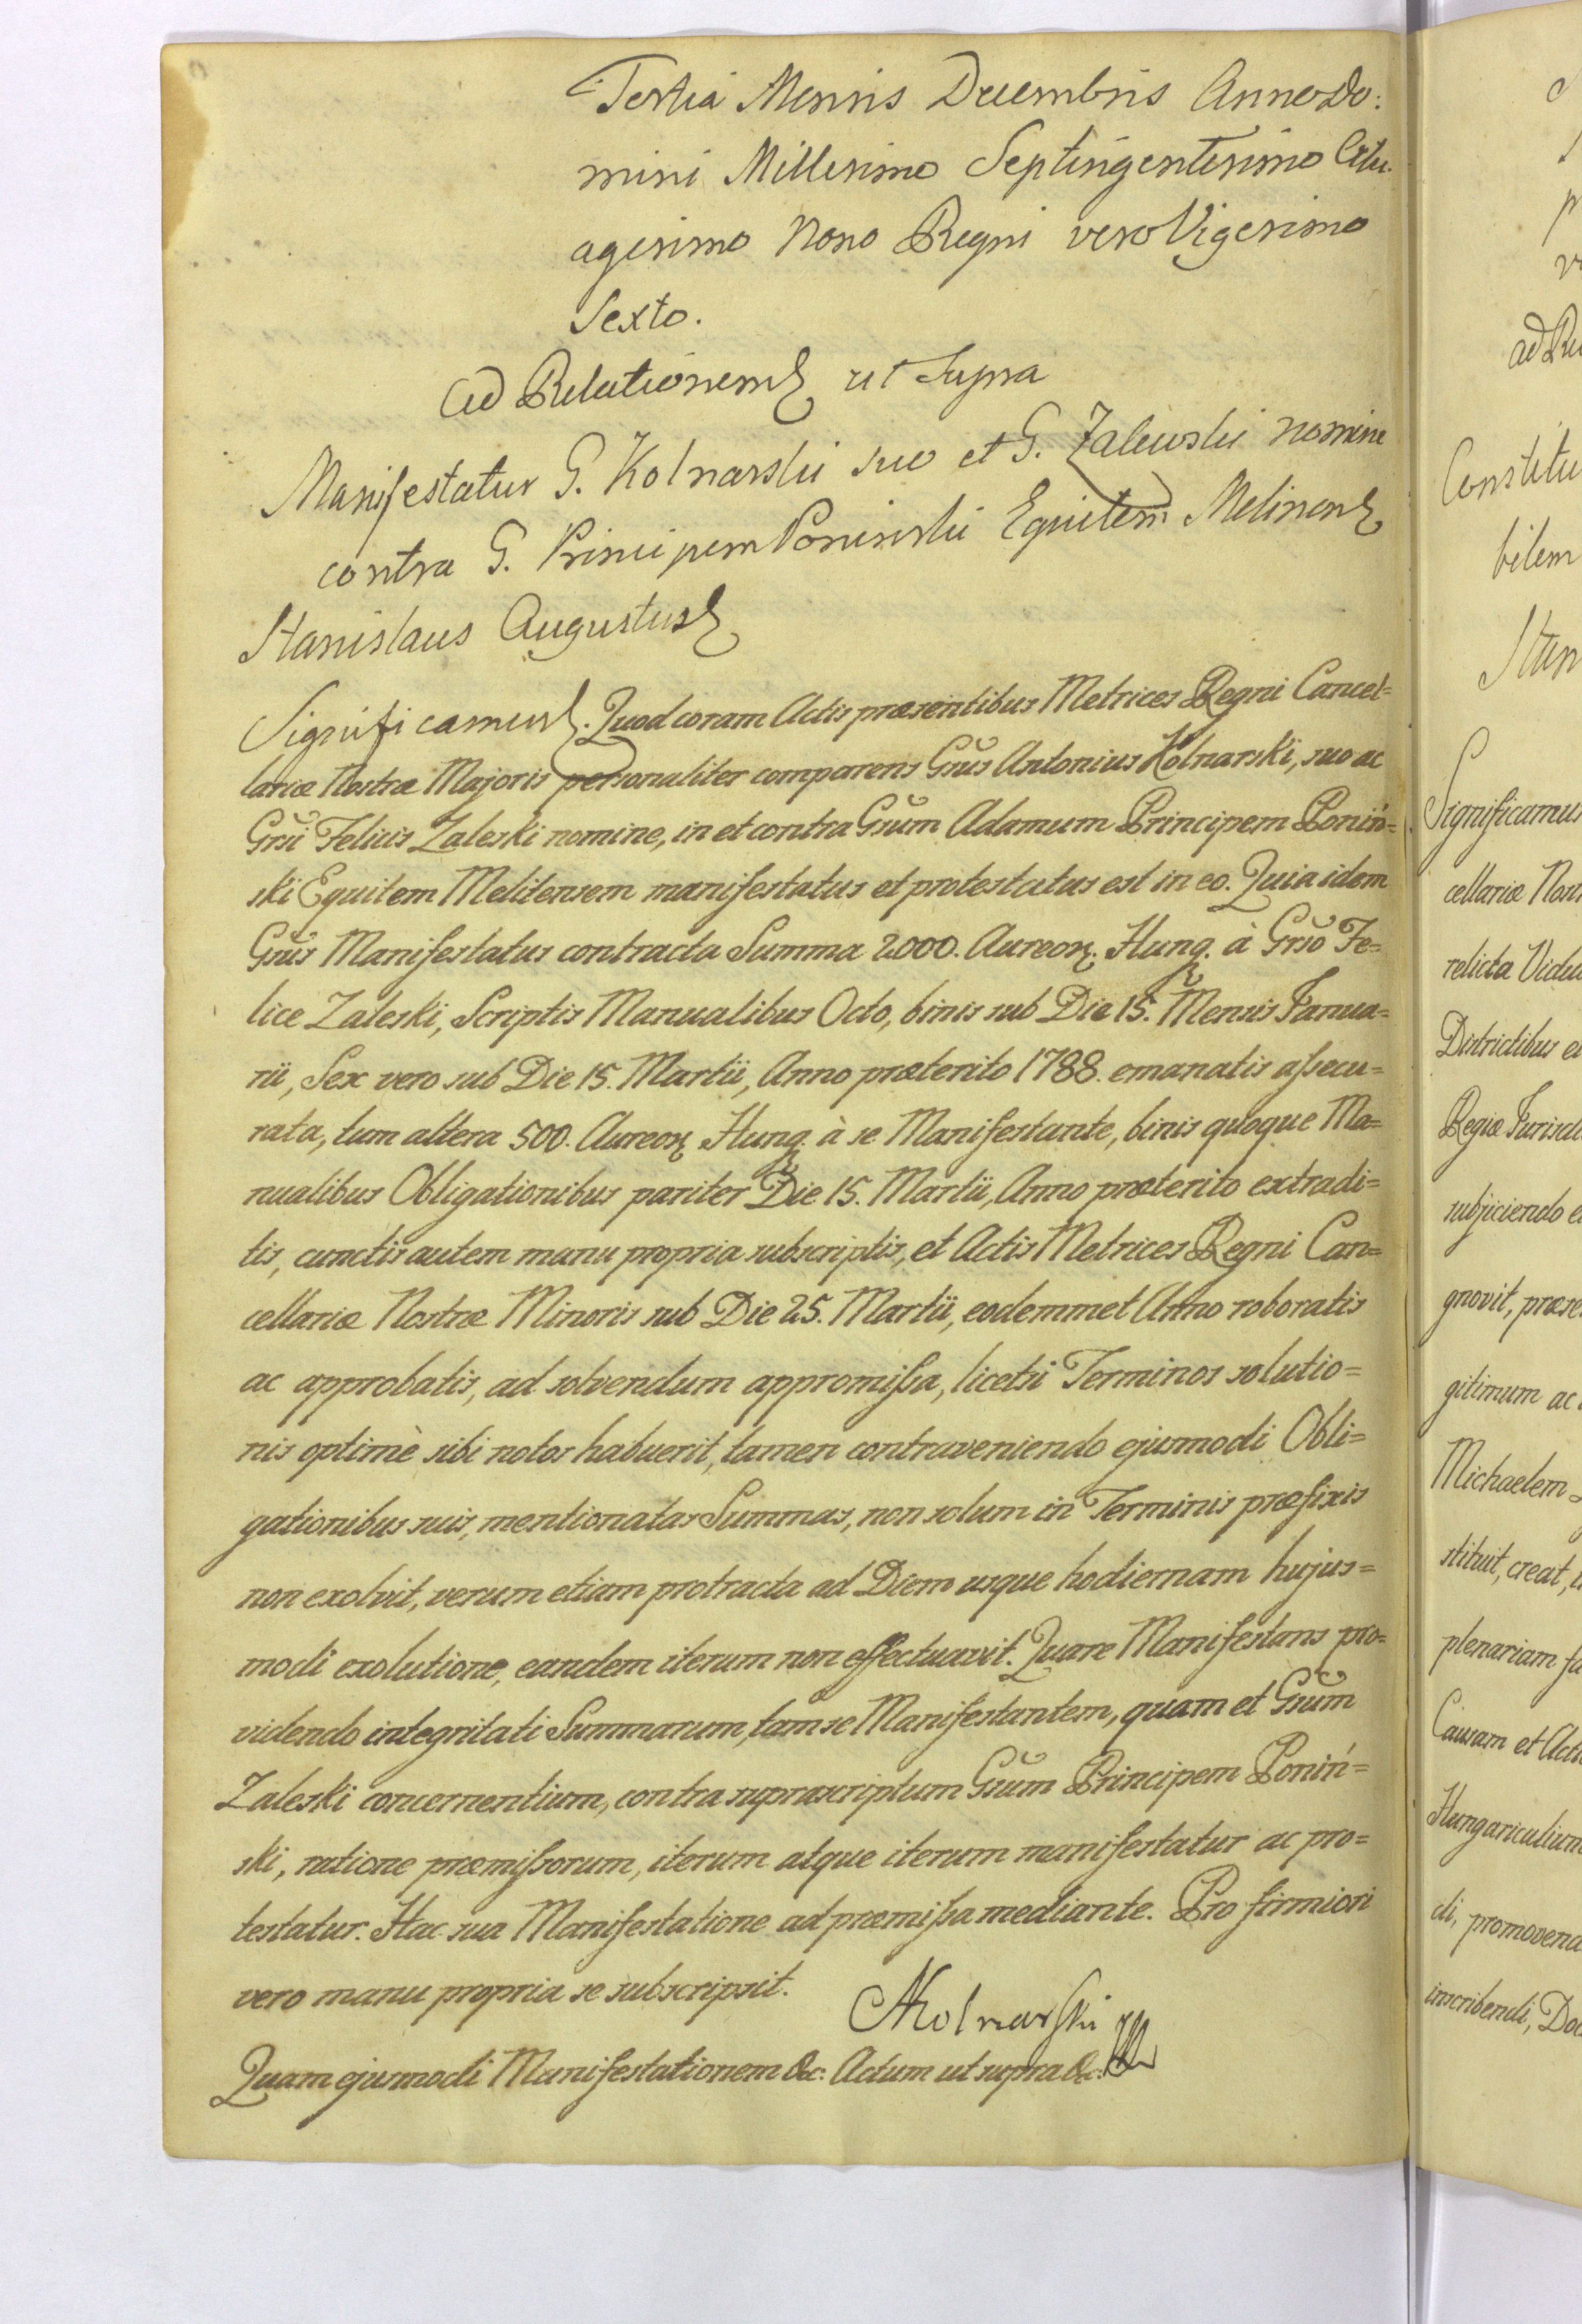 Tertia Mensis Decembris Anno Do:
mini Millesimo Septingentesimo Octu.
agesimo Nono Regni vero Vigesimo
Sexto.
Ad Relationem ut supra
Manifestatur G. Kolnarski suo et G. Zalewski nomine
contra G. Principem Poninski Equitem Meliten
Stanislaus Augustus
Significamus. Quod coram Actis præsentibus Metrices Regni Cancel=
lariæ Nostræ Majoris personaliter comparens Grsus Antonius Kolnarski, suo ac
Grsi Felicis Zaleski nomine, in et contra Grsum Adamum Principem Poniń=
ski Equitem Melitensem manifestatus et protestatus est in eo. Quia idem
Grsus Manifestatus contracta Summa 2000. Aureor. Hung. à Grso Fe=
lice Zaleski, Scriptis Manualibus Octo, binis sub Die 15. Mensis Janua=
rii, Sex vero sub Die 15. Martii, Anno præterito 1788. emanatis assecu=
rata, tum altera 500. Aureor Hung. à se Manifestante, binis quoque Ma=
nualibus Obligationibus pariter Die 15. Martii, Anno præterito extradi=
tis, cunctis autem manu propria subscriptis, et Actis Metrices Regni Can=
cellariæ Nostræ Minoris sub Die 25. Martii, eodemmet Anno roboratis
ac approbatis, ad solvendum appromissa, licetsi Terminos solutio=
nis optimè sibi notos habuerit, tamen contraveniendo ejusmodi Obli=
gationibus suis, mentionatas Summas, non solum in Terminis præfixis
non exolvit, verum etiam protracta ad Diem usque hodiernam hujus=
modi exolutione, eandem iterum non effectuavit. Quare Manifestans pro=
videndo integritati Summarum, tam se Manifestantem, quam et Grsum
Zaleski concernentium, contra suprascriptum Grsum Principem Poniń=
ski, ratione præmissorum, iterum atque iterum manifestatur ac pro=
testatur. Hac sua Manifestatione ad præmissa mediante. Pro firmiori
vero manu propria se subscripsit.
AKolnarski
Quam ejusmodi Manifestationem &c: Actum ut supra &c.
ad Re
Constitu
bilem
Stan
Significamus
cellariæ Nost
relicta Vidu
Districtibus e
Regiæ Jurisd
subjiciendo e
gnovit, præse
gitimum ac
Michaelem
stituit, creat,
plenariam fa
Causam et Act
Hungaricalium
di, promovend
inscribendi, Do